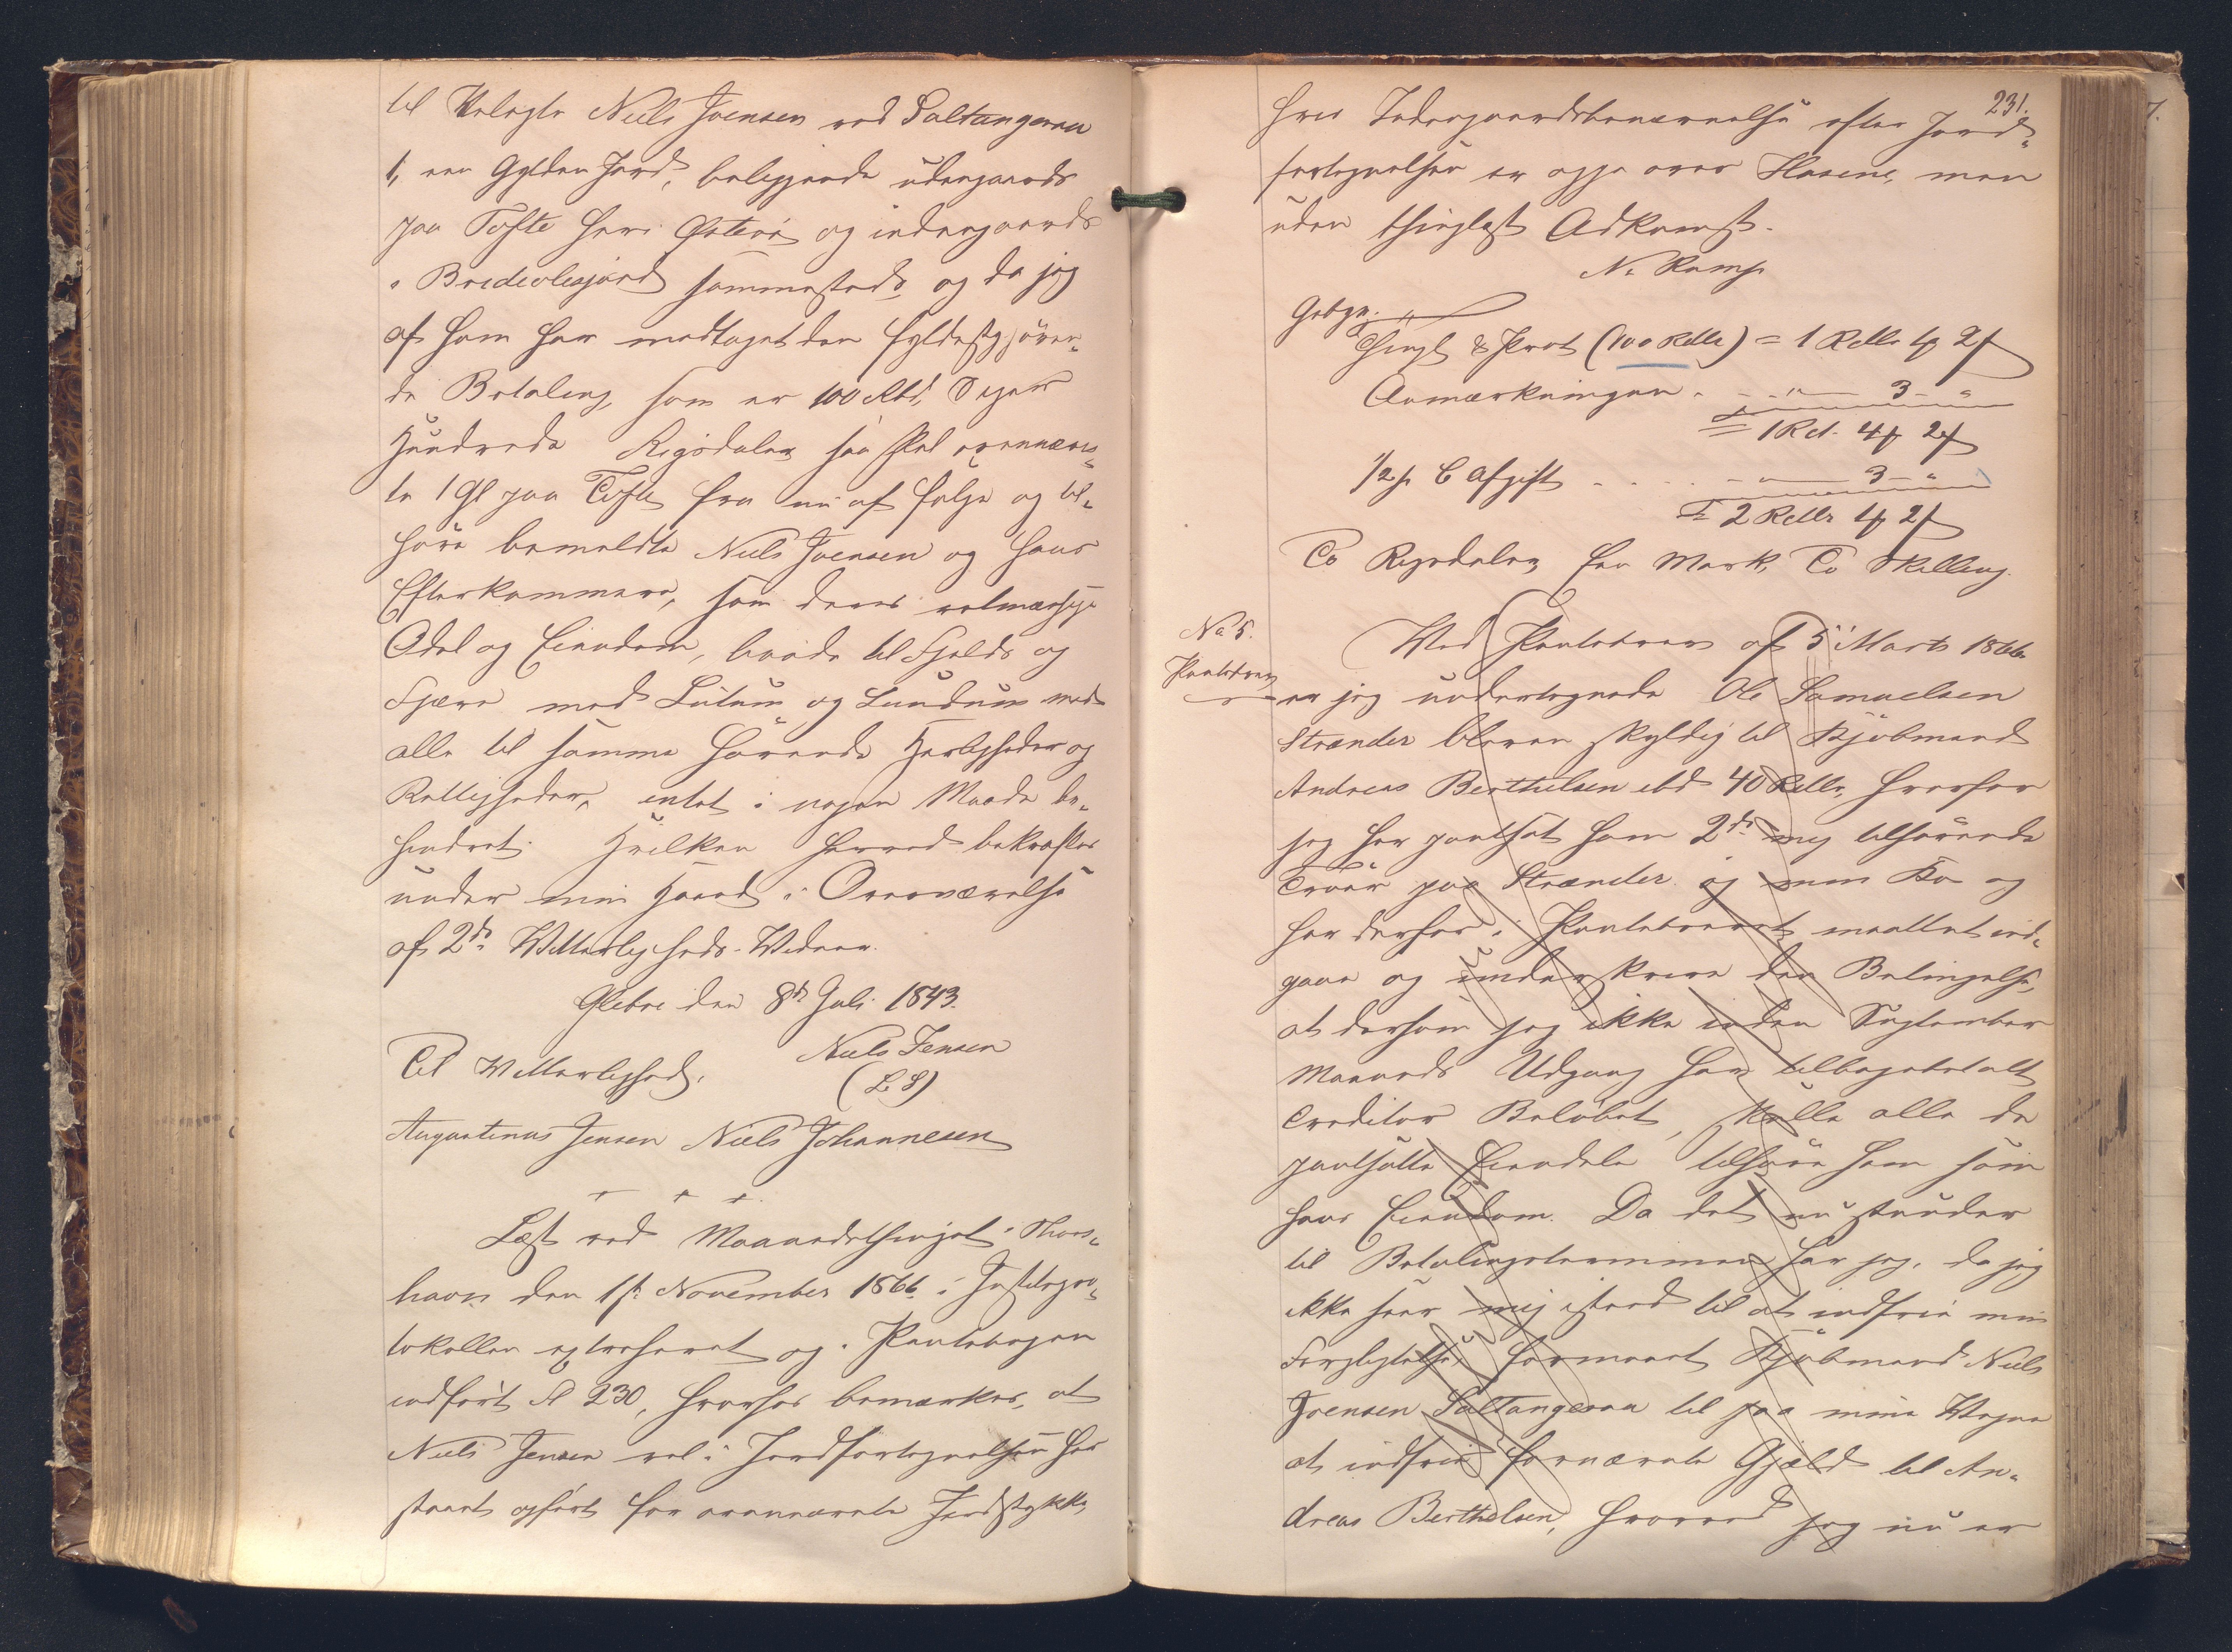 til Velagte Niels Joensen ved Saltangeraa
1, een Gylden Jord, beliggende udengaards
paa Tofte her i Østerö og indengaards
i Bredevlesjord sammesteds, og da jeg
af ham har modtaget den fyldestgjören-
de Betaling, som er 100 Rbd, siger
Hundrede Rigsdaler, saa skal ovennævn-
te 1 Gl paa Tofte fra nu af følge og til-
höre bemeldte Niels Joensen og hans
Efterkommere, som deres velmæssige
Odel og Eiendom, baade til Fjelds og
Fjære med Lutum og Lundum med
alle til samme hörende Herligheder og
Rettigheder, intet i nogen Maade be-
hindret. Hvilken herved bekræftes
under min Haand i Overværelse
af 2de Vitterligheds-Vidner.
Glibre den 8de Juli 1843.
Niels Jensen
(L.S)
Til Vitterlighed,
Augustinus Jensen Niels Johannesen
Læst ved Maanedsthinget i Thors-
havn den 1st November 1866 i Justitspro-
tokollen extraheret og i Pantebogen
indfört Fol 230, hvorhos bemærkes, at
Niels Jensen vel i Jordfortegnelsen har
staaet opfört for ovennævnte Jordstykke,
231.
hvis Indengaardsbenævnelse efter Jord-
fortegnelsen er oppe over Husene, men
uden thinglæst Adkomst.
N. Ramp
Gebyr:
Thingl & Prot (100 Rdlr) = 1 Rdlr 1 ꝟ 2 ß
Anmærkningen . - - " 3 - "
= 1 Rd. 4 ꝟ 2 ß
1/2 p C Afgift - - - " 3 - "
= 2 Rdlr 1 ꝟ 2 ß
To Rigsdaler, Een Mark, To Skilling.
No 5.
Pantebrev
Ved Pantebrev af 5 Marts 1866
er jeg undertegnede Ole Samuelsen
Strænder bleven skyldig til Kjöbmand
Andreas Berthelsen ibd 40 Rdlr, hvorfor
jeg har pantsat ham 2de mig tilhörende
paa Strænder og min Ko og
har derfor i Pantebrevet maattet ind-
gaae og underskrive den Betingelse,
at dersom jeg ikke inden September
Maaneds Udgang har tilbagebetalt
Creditor Belöbet, skulle alle de
pantsatte Eiendele tilhöre ham som
hans Eiendom. Da det nu stunder
til Betalingsterminen har jeg, da jeg
ikke seer mig istand til at indfrie min
Forpligtelse, formaaet Kjöbmand Niels
Joensen Saltangeraa til paa mine Vegne
at indfrie fornævnte Gjæld til An-
dreas Berthelsen, hvorved jeg nu er